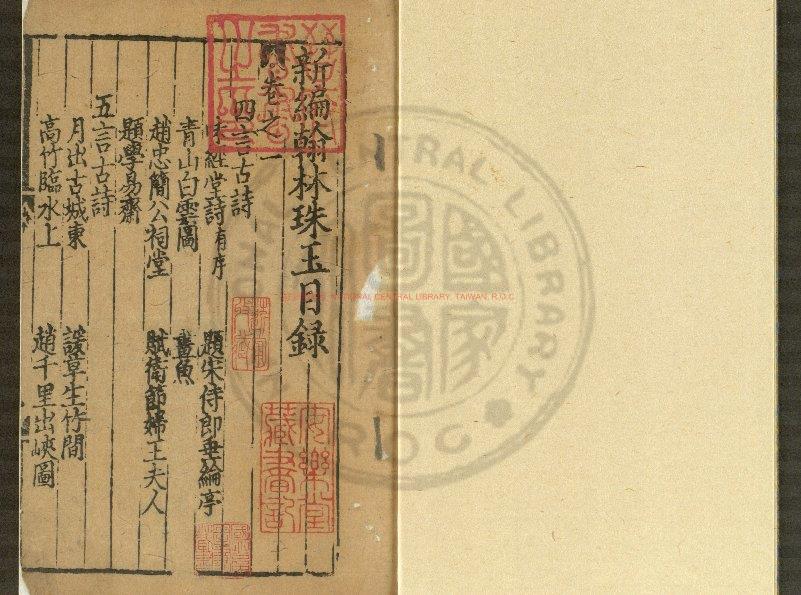 新編翰林珠玉目録
卷之一
四言古詩
經堂詩有序 題宋侍郎垂綸亭
青山白雲圖 畫魚
趙忠簡公祠堂 賦衛節婦王夫人
題學易齋
五言古詩
月出古城東 諼草生竹間
高竹臨水上 趙千里出峽圖
安樂堂藏書記
CENTRAL LIBRARY
R.O.C
NATIONAL CENTRAL LIBRARY, TAIWAN, R.O.C
國家圖書